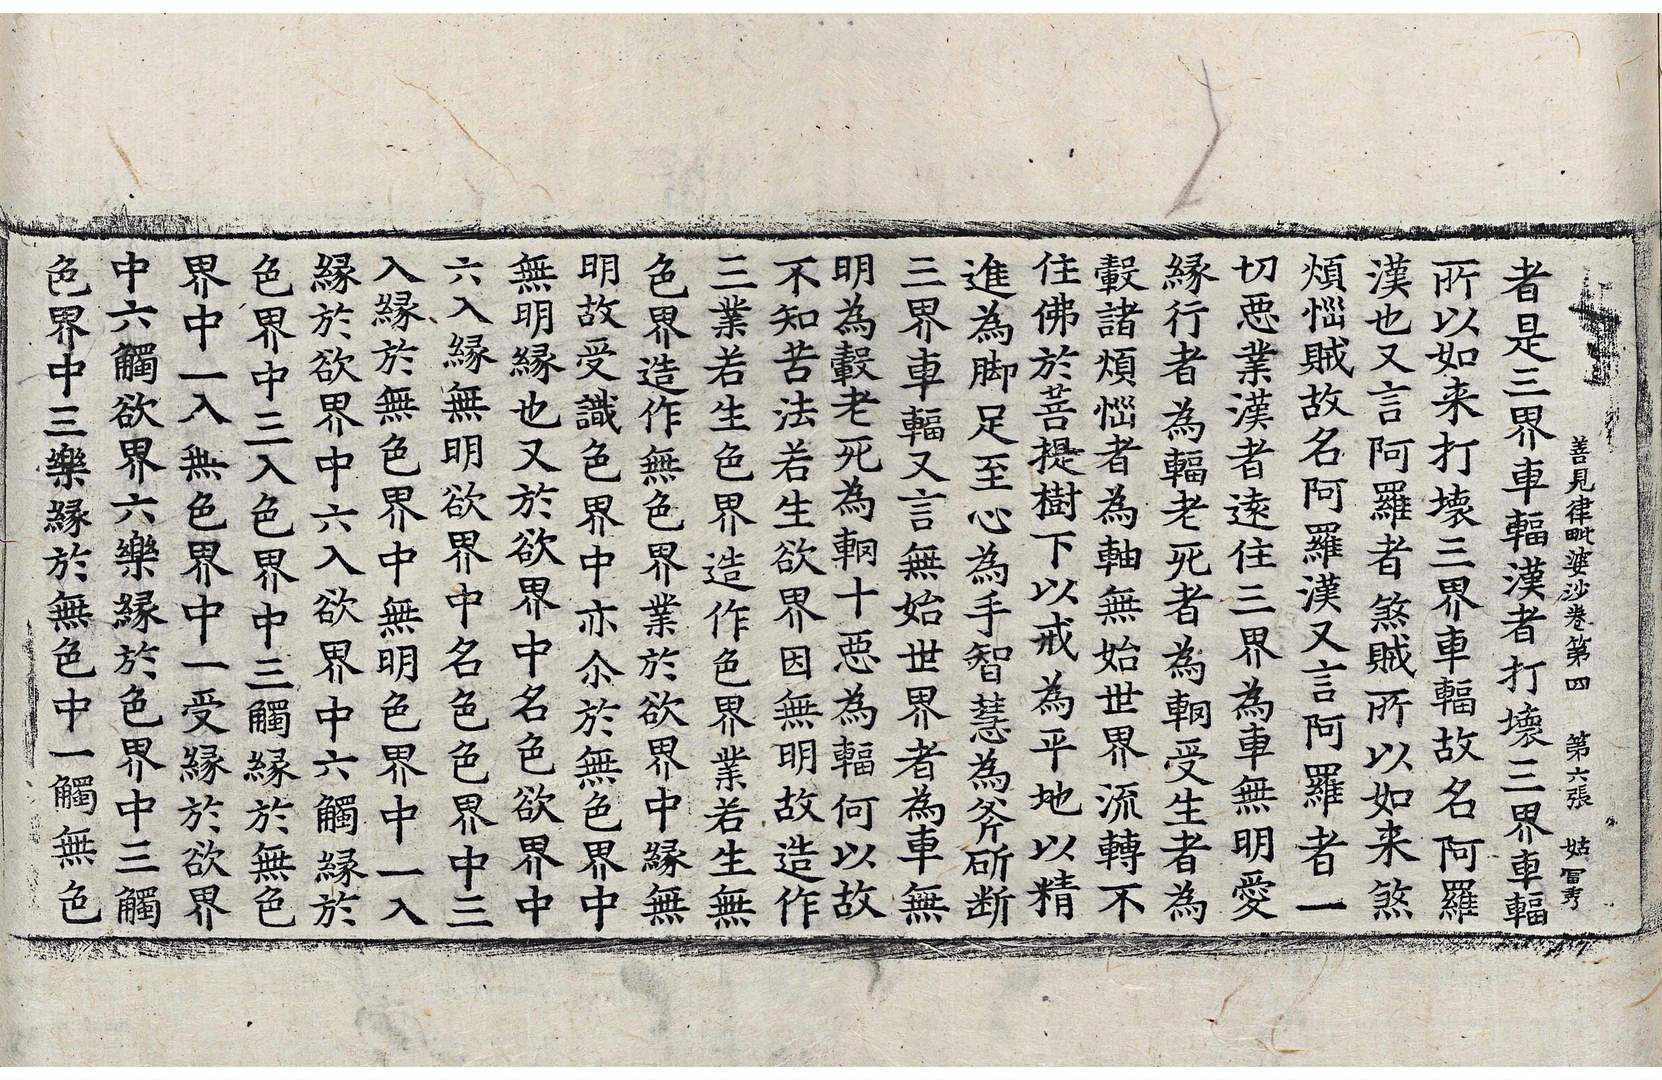 善見律毗婆沙卷第四 第六張 姑
者是三界車輻漢者打壞三界車輻
所以如来打壞三界車輻故名阿羅
漢也又言阿羅者煞賊所以如来煞
煩惱賊故名阿羅漢又言阿羅者一
切惡業漢者遠住三界為車無明愛
緣行者為輻老死者為輞受生者為
轂諸煩惱者為軸無始世界流轉不
住佛於菩提樹下以戒為平地以精
進為脚足至心為手智慧為斧斫断
三界車輻又言無始世界者為車無
明為轂老死為輞十惡為輻何以故
不知苦法若生欲界因無明故造作
三業若生色界造作色界業若生無
色界造作無色界業於欲界中緣無
明故受識色界中亦尒於無色界中
無明緣也又於欲界中名色欲界中
六入緣無明欲界中名色色界中三
入緣於無色界中無明色界中一入
緣於欲界中六入欲界中六觸緣於
色界中三入色界中三觸緣於無色
界中一入無色界中一受緣於欲界
中六觸欲界六樂緣於色界中三觸
色界中三樂緣於無色中一觸無色